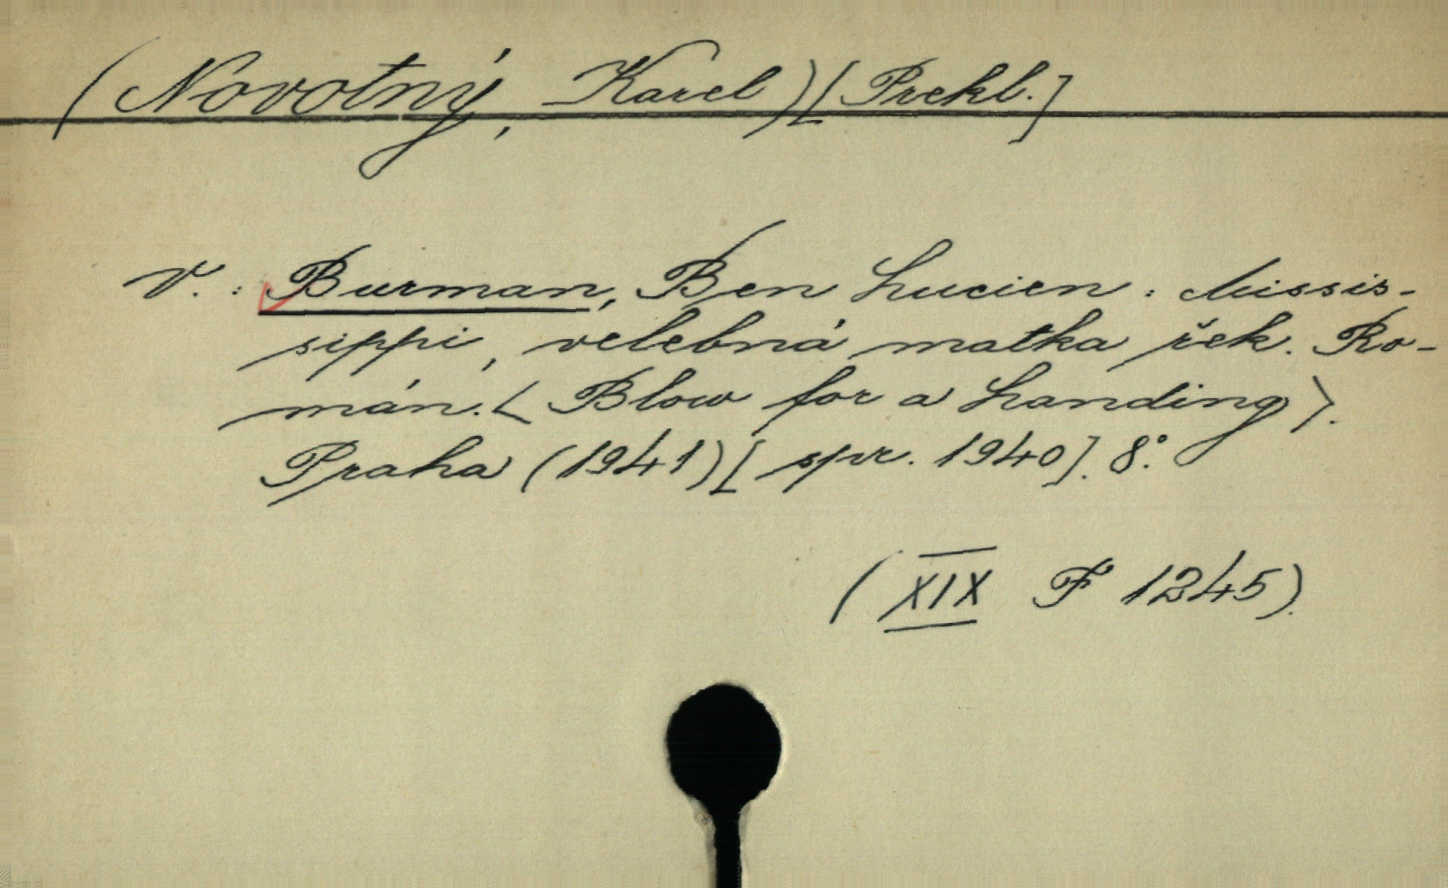 (Novotný, Karel) [Prekl.]
v. : Burman, Ben Lucien : Missis-
sippi, velebná matka řek. Ro-
mán. < Blow for a Landing >.
Praha (1941) [spr. 1940]. 8°.
(XIX F 1245).